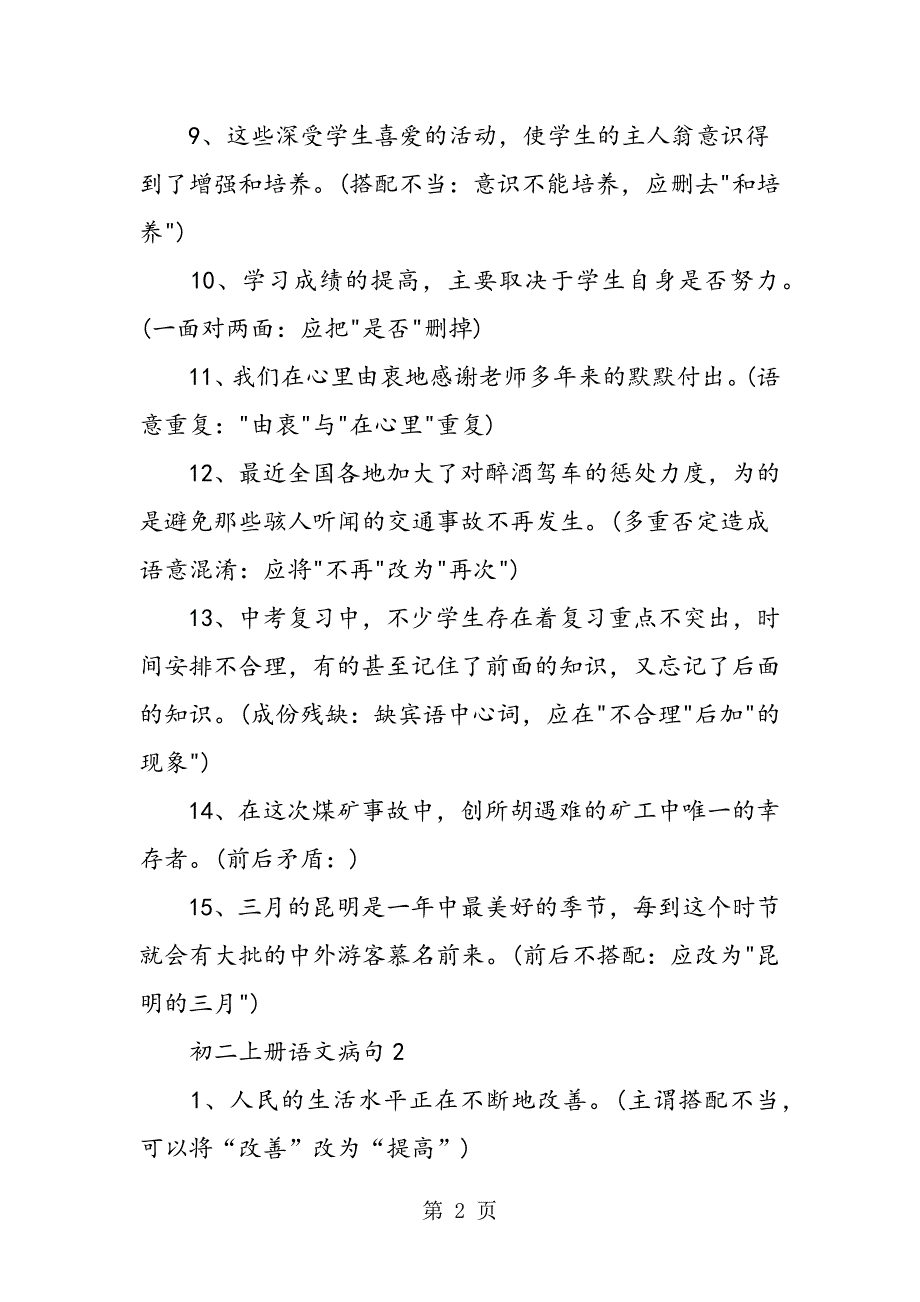 9、这些深受学生喜爱的活动，使学生的主人翁意识得
到了增强和培养。(搭配不当：意识不能培养，应删去"和培
养")
10、学习成绩的提高，主要取决于学生自身是否努力。
(一面对两面：应把"是否"删掉)
11、我们在心里由衷地感谢老师多年来的默默付出。(语
意重复："由衷"与"在心里"重复)
12、最近全国各地加大了对醉酒驾车的惩处力度，为的
是避免那些骇人听闻的交通事故不再发生。(多重否定造成
语意混淆：应将"不再"改为"再次")
13、中考复习中，不少学生存在着复习重点不突出，时
间安排不合理，有的甚至记住了前面的知识，又忘记了后面
的知识。(成份残缺：缺宾语中心词，应在"不合理"后加"的
现象")
14、在这次煤矿事故中，创所胡遇难的矿工中唯一的幸
存者。(前后矛盾：)
15、三月的昆明是一年中最美好的季节，每到这个时节
就会有大批的中外游客慕名前来。(前后不搭配：应改为"昆
明的三月")
初二上册语文病句2
1、人民的生活水平正在不断地改善。(主谓搭配不当，
可以将“改善”改为“提高”)
第 2 页